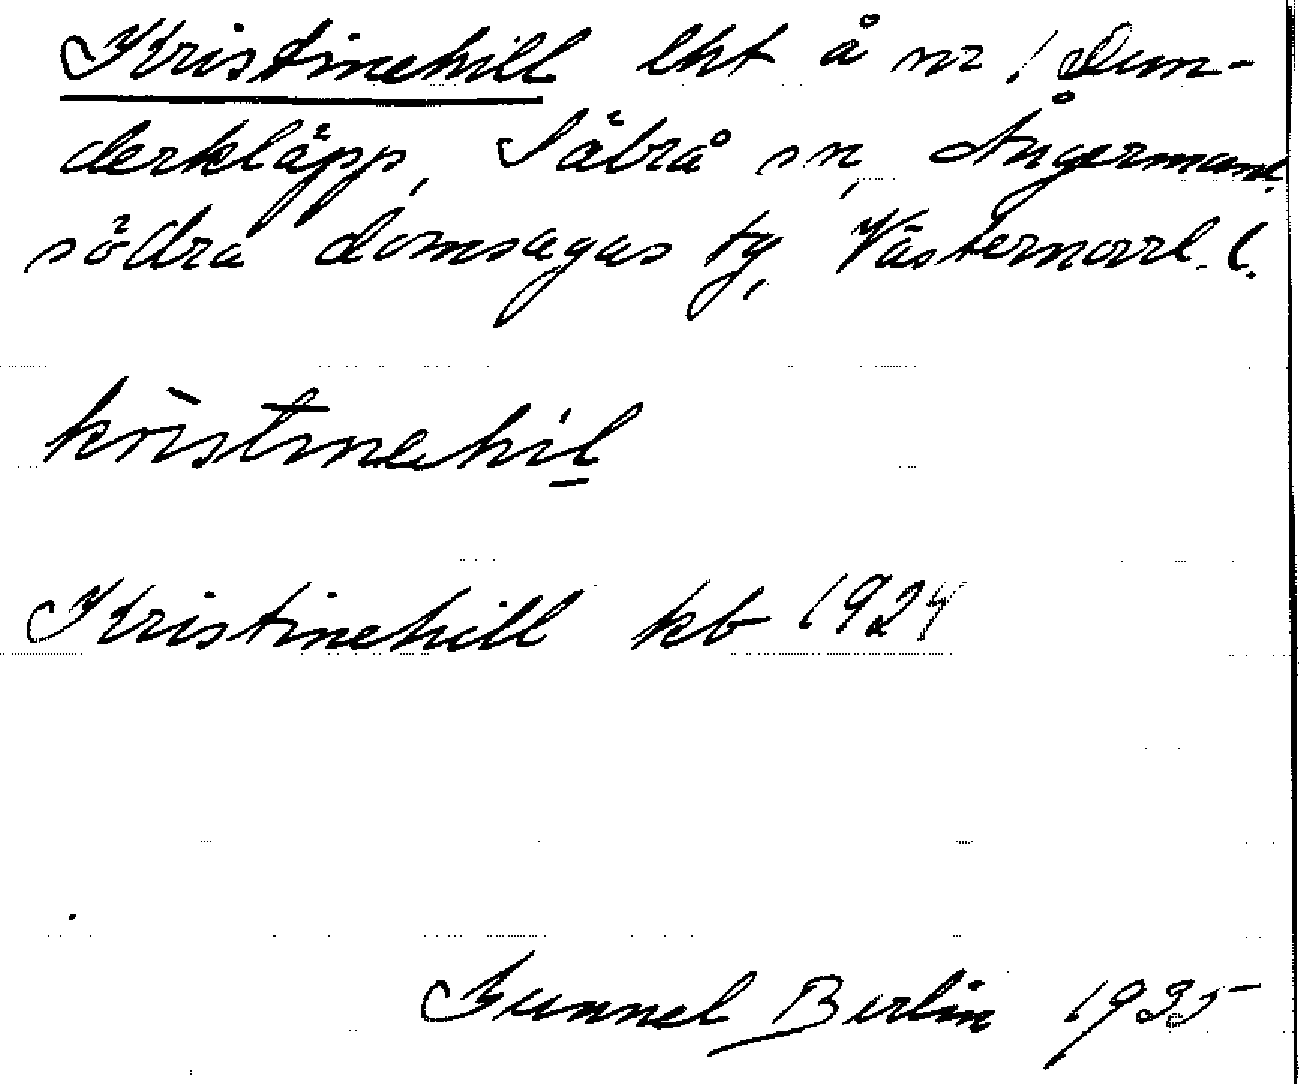 Kristinehill lht å nr 1 Dun-
derkläpp, Säbrå sn, Ångermanl.
södra domsagas tg, Västernorrl. l.
kristinehil
Kristinehill kb 1924
Gunnel Berlin 1935